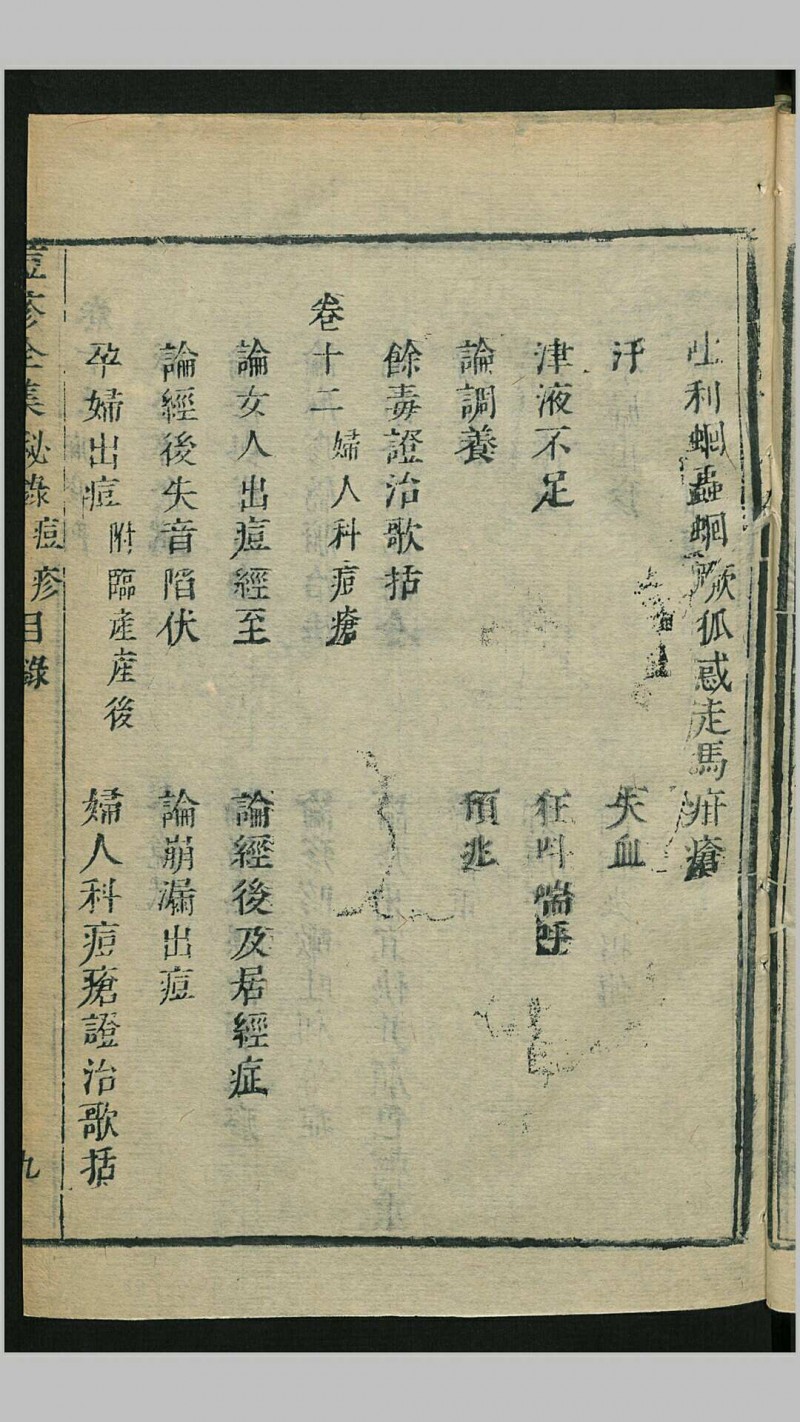 吐利蛔蟲蛔厥狐惑走馬疳瘡
汗　失血
津液不足　狂叫喘呼
論調養　預兆
餘毒證治歌括
卷十二　婦人科痘瘡
論女人出痘經至　論經後及居經症
論經後失音陷伏　論崩漏出痘
孕婦出痘　附臨產產後　婦人科痘瘡證治歌括
痘疹全集秘錄痘疹目錄　九